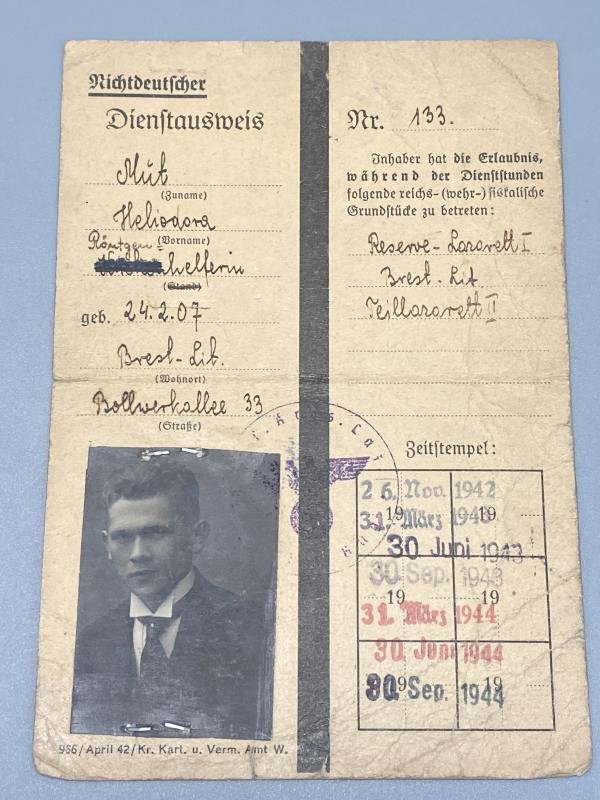 Nichtdeutscher
Dienstausweis
Mut
(Zuname)
Heliodora
(Vorname)
Röntgen=
helferin
(Stand)
geb. 24.2.07
Brest-Lit.
(Wohnort)
Bollwerkallee 33
(Straße)
966/April 42/Kr. Kart. u. Verm. Amt W.
Nr. 133.
Inhaber hat die Erlaubnis,
während der Dienststunden
folgende reichs-(wehr-)fiskalische
Grundstücke zu betreten:
Reserve-Lazarett I
Brest-Lit.
Teillazarett II
Zeitstempel:
26. Nov. 1942
19 19
31. März 1943
30 Juni 1943
30 Sep. 1943
19 19
31. März 1944
30. Juni 1944
19 19
30. Sep. 1944